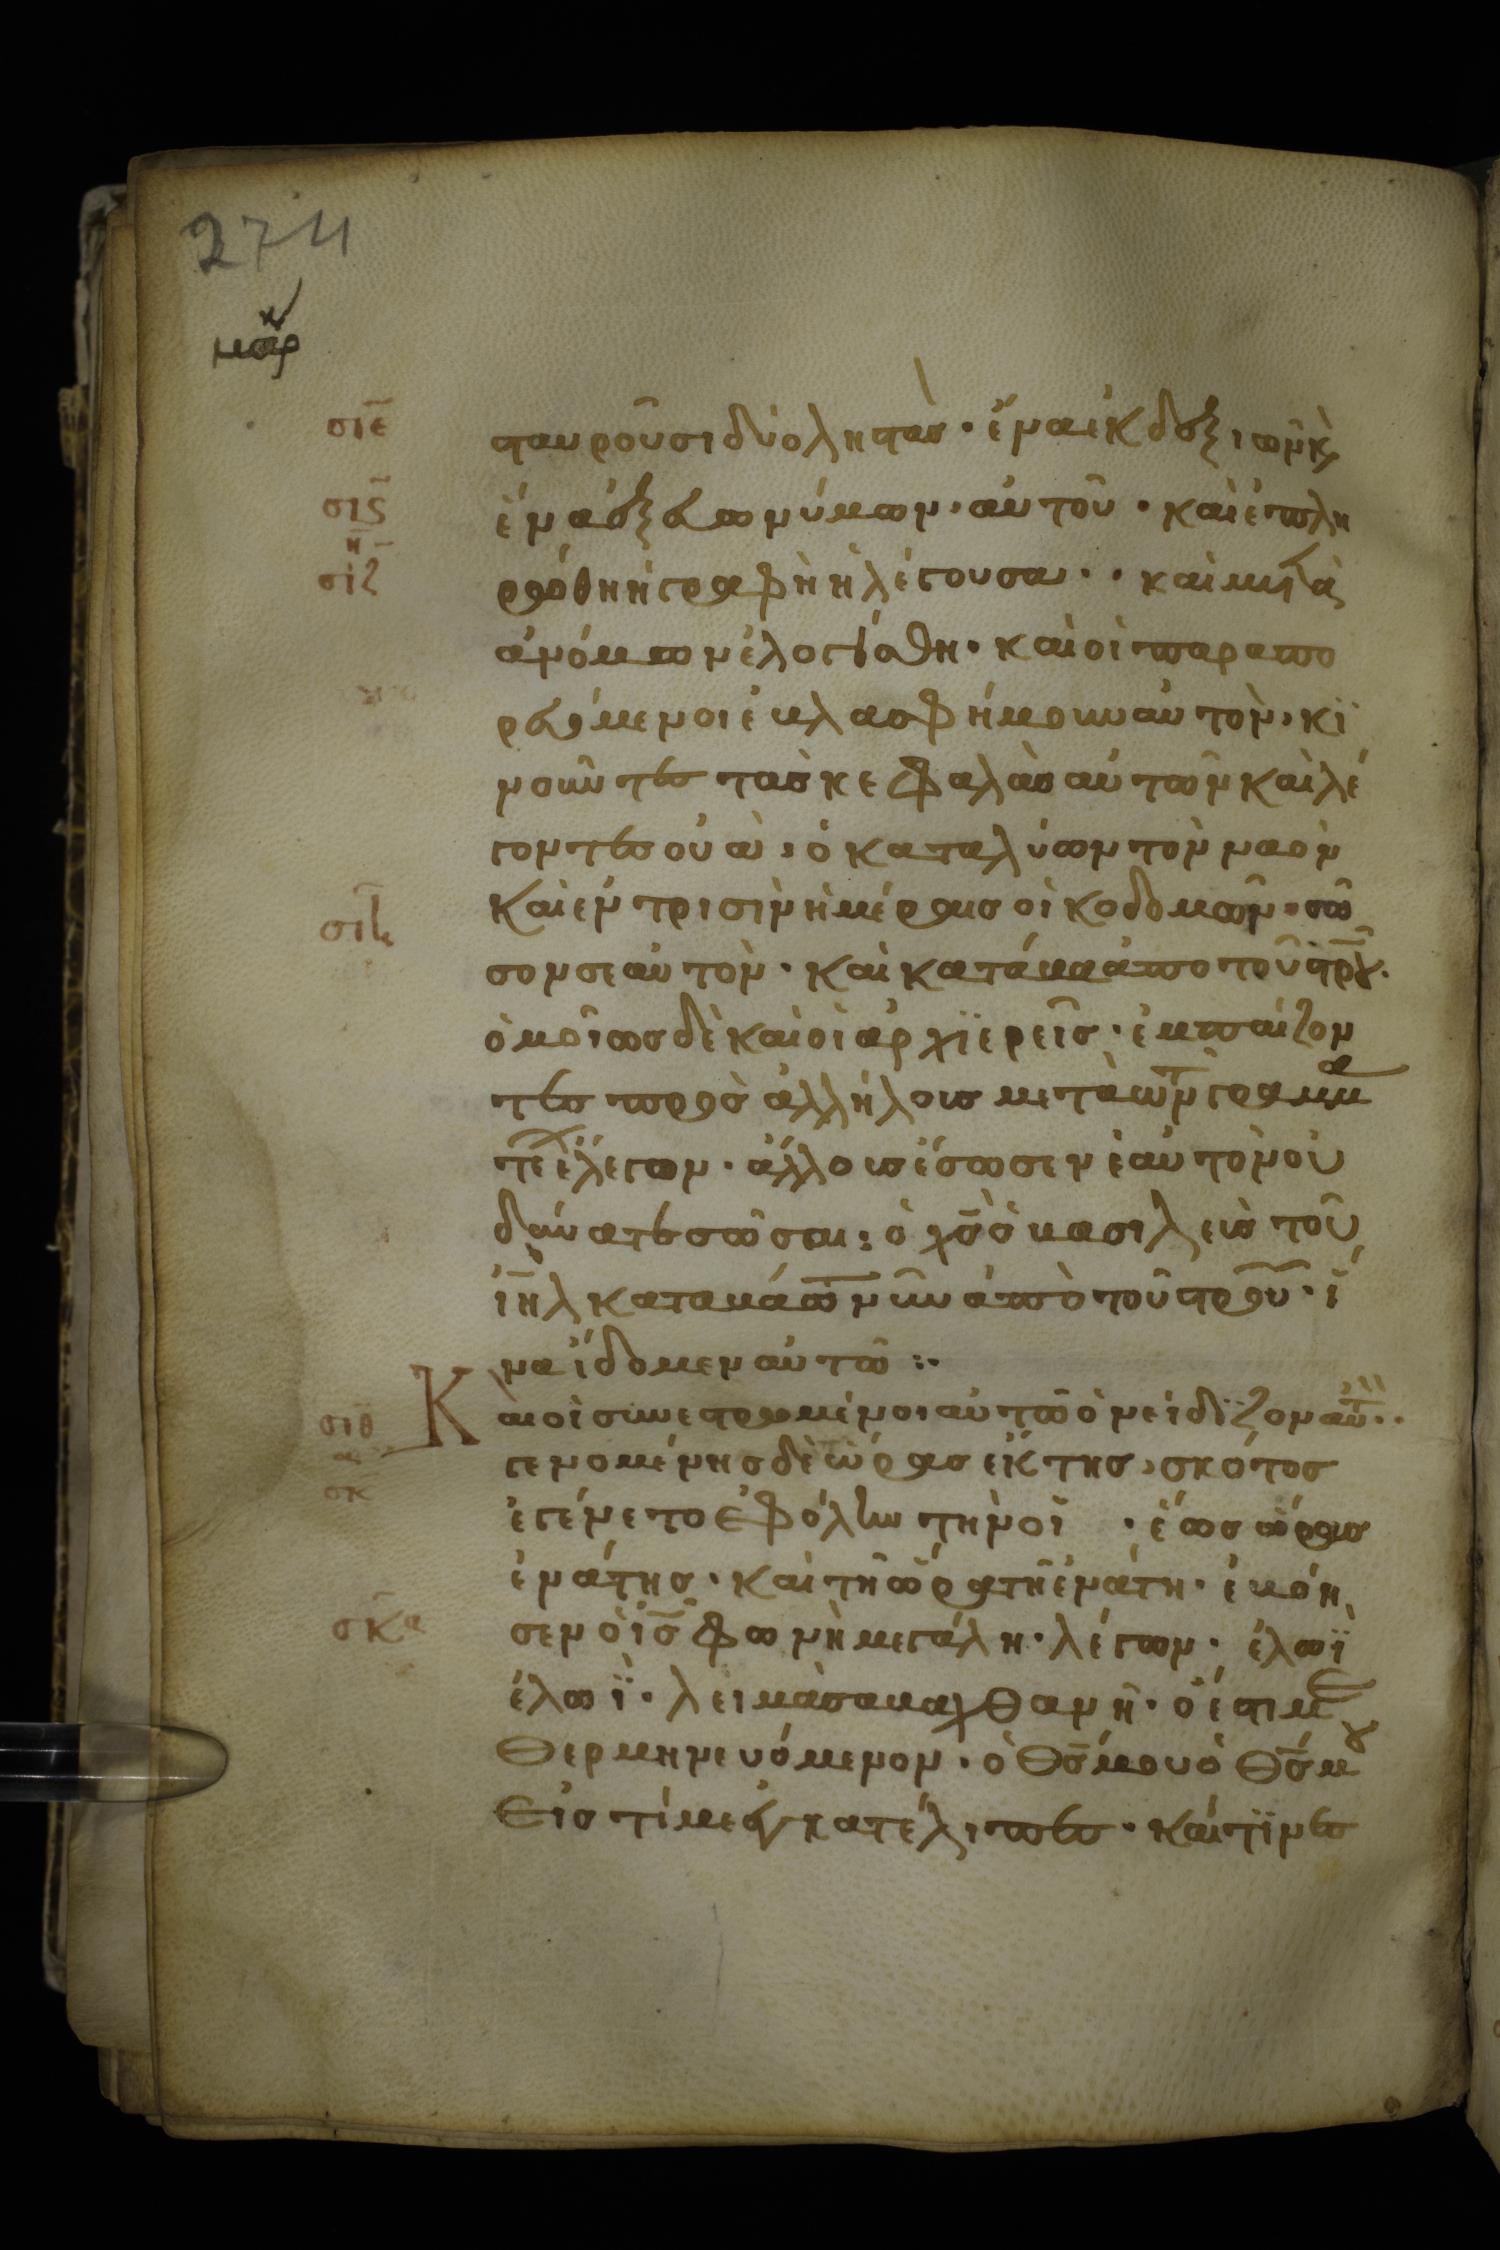 274
μαρκ
σιε
σταυροῦσι δύο ληστὰς · ἕνα ἐκ δεξιῶν κ
σις
ἕνα ἐξ εὐωνύμων · αὐτοῦ · καὶ ἐπλη
η
σιζ
ρώθη ἡ γραφὴ ἡ λέγουσα · · καὶ μετὰ
ἀνόμων ἐλογίσθη · καὶ οἱ παραπο
ρευόμενοι ἐβλασφήμουν αὐτὸν, κϊ
νοῦντες τὰς κεφαλὰς αὐτῶν καὶ λέ
γοντες οὐὰ, ὁ καταλύων τὸν ναὸν
καὶ ἐν τρισὶν ἡμέραις οἰκοδομῶν · σῶ
σιη
σον σεαὐτὸν · καὶ κατάβα ἀπο τοῦ στρου ·
ὁμοίως δὲ καὶ οἱ ἀρχϊερεῖς · ἐμπαίζον
τες πρὸς ἀλλήλους μετὰ τῶν γραμμα
τέ ἔλεγον · ἄλλους ἔσωσεν ἑαὐτὸν οὐ
δύναται σῶσαι : ὁ χς ὁ βασιλεὺς τοῦ
ιηλ καταβάτω νῦν ἀπὸ τοῦ στρου · ἵ
να ἴδομεν αὐτῶ :·
σιθ
Καὶ οἱ συνεστρωμένοι αὐτῶ ὀνείδϊζον αὐτ · ·
σκ
γενομένης δὲ ὥρας ἕκτης, σκότος
ἐγένετο ἐφ όλην τὴν γῆ · ἕως ὥρας
ἐνάτης · καὶ τῆ ὥρα τῆ ἐνάτη · ἐβόη
σκα
σεν ὁ ις φωνὴ μεγάλη · λέγων · ἐλωϊ
ἐλωϊ · λειμὰ σαβαχθανῆ · ὅ ἐστι με
θερμηνευόμενον · ὁ θς μου ὁ θς μου
εἰς τί με ἐγκατέλιπες · καί τϊνες